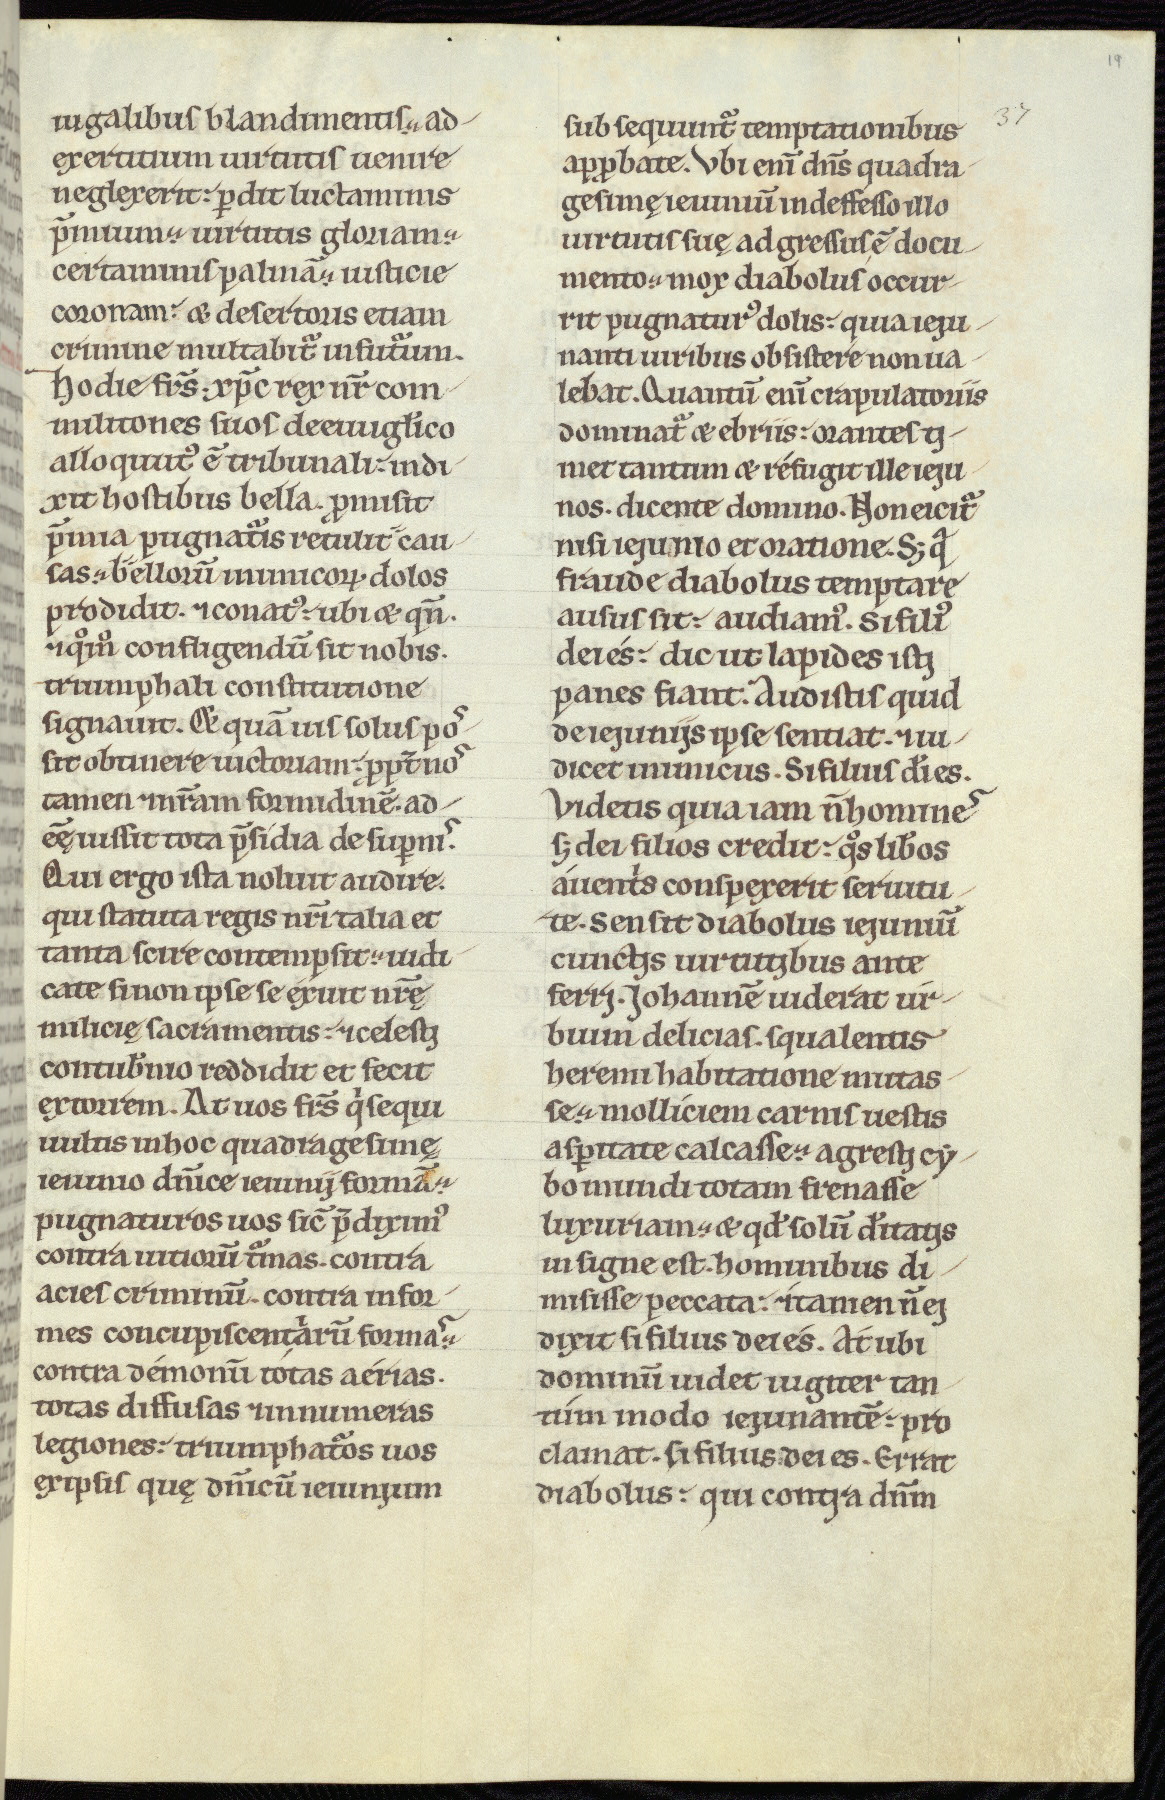 19
37
iugalibus blandimentis ad-
exertitium uirtutis uenire
neglexerit: p̲dit luctaminis
p̄mium uirtutis gloriam
certaminis palmā iusticie
coronam: & desertoris etiam
crimine multabit᷑ in fut᷑um.
Hodie fr̄s xp̄c rex nr̄ com-
militones suos de euuglico
alloquut᷒ ē tribunali: indi-
xit hostibus bella. ꝓmisit
p̄mia pugnat᷑is retulit cau
sas belloꝝ inimicoꝝ dolos
prodidit. ⁊ conat᷒: ubi & qn̄.
⁊ qͦm̊ confligendū sit nobis.
triumphali constitutione
signauit. & quāuis solus pos
sit obtinere uictoriam: ꝓpt̄ nos
tamen ⁊ nr̄am formidinē. ad-
eē iussit tota p̄sidia de sup̲nis.
Qui ergo ista noluit audire.
qui statuta regis nr̄i talia et
tanta scire contempsit iudi-
cate si non ipse se exiuit nr̄ę
milicię sacramentis: ⁊ celesti
contub̄nio reddidit et fecit
extorrem. At uos fr̄s qͥ sequi
uultis in hoc quadragesimę
ieiunio dn̄ice ieiunij formā
pugnaturos uos sic̄ p̄diximꝰ
contra uitiorū t᷑mas. contra
acies criminū. contra infor-
mes concupiscentiarū formas
contra démonū tótas aérias.
totas diffusas ⁊ innumeras
legiones: triumphat᷑os uos
ex ipsis quę dn̄icū ieiunium
subsequunt᷑ temptationibus
apꝓbate. Vbi eni᷑ dn̄s quadra-
gesimę ieiuniū indeffesso illo
uirtutis suę adgressus ē docu-
mento mox diabolus occur-
rit pugnaturꝰ dolis: quia ieiu-
nanti uiribus obsistere non ua-
lebat. Quantū eni᷑ crapulatoriis
dominat᷑ & ebriis: orantes ti-
met tantum & réfugit ille ieiu-
nos. dicente domino. Non eicit᷑
nisi ieiunio et oratione. Sꝫ qͣ
fraude diabolus temptare
ausus sit: audiamꝰ. Si filiꝰ
dei és: dic ut lapides isti
panes fiant. Audistis quid
de ieiuniis ipse sentiat. ⁊ uŕ
dicet inimicus. Si filius di es.
Videtis quia iam n̄ homines
sꝫ dei filios credit: qͦs lib̄os
á uentris conspexerit seruitu-
te. Sensit diabolus ieiuniū
cunctis uirtutibus ante
ferri. Johannē uiderat ur-
bium delicias. squalentis
heremi habitatione mutas-
se molliciem carnis uestis
asp̲itate calcasse agresti cy-
bo mundi totam frenasse
luxuriam & qd̄ solū ditatis
insigne est. hominibus di-
misisse peccata: ⁊ tamen n̄ ei
dixit si filius dei és. At ubi
dominū uidet iugiter tan-
tum modo ieiunantē: pro
clamat. si filius dei es. Errat
diabolus: qui contra dn̄m